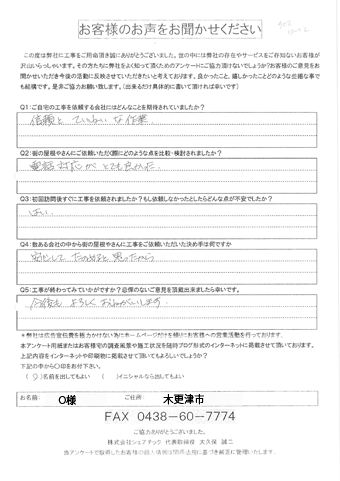 お客様のお声をお聞かせください
この度は弊社に工事をご用命頂き誠にありがとうございました。世の中には弊社の存在やサービスをご存知ないお客様が
沢山いらっしゃいます。その方たちに弊社をよく知って頂くためのアンケートにご協力頂けないでしょうか？お客様のご意見をお
聞かせいただき今後の活動に反映させていただきたいと考えております。良かったこと、嬉しかったことどのような些細な事で
も結構です。是非ご協力お願い致します。（出来るだけ具体的に書いて頂ければ幸いです）
Q1：ご自宅の工事を依頼する会社にはどんなことを期待されていましたか？
信頼と ていねいな作業
Q2：街の屋根やさんにご依頼いただく際にどのような点を比較・検討されましたか？
電話対応が とても良かった
Q3：初回訪問後すぐに工事を依頼されましたか？もし依頼しなかったとしたらどんな点が不安でしたか？
はい
Q4：数ある会社の中から街の屋根やさんに工事をご依頼いただいた決め手は何ですか
安心して たのめると思ったから
Q5：工事が終わってみていかがですか？忌憚のないご意見を頂戴出来ましたら幸いです。
今後も よろしく おねがいします
＊弊社は広告宣伝費を極力かけない為にホームページだけを頼りにお客様への営業活動を行っております。
本アンケート用紙またはお客様宅の調査風景や施工状況を随時ブログ形式のインターネットに掲載させて頂いております。
上記内容をインターネットや印刷物に掲載させて頂いてもよろしいでしょうか？
下記の中から〇印をお付け下さい。
（〇）名前を出してもよい （ ）イニシャルなら出してもよい
お名前： O様 ご住所： 木更津市
FAX 0438-60-7774
ご協力ありがとうございました。
株式会社シェアテック 代表取締役 大久保 誠二
当アンケートで取得したお客様の個人情報は関係法規に基づき厳正に管理いたします。